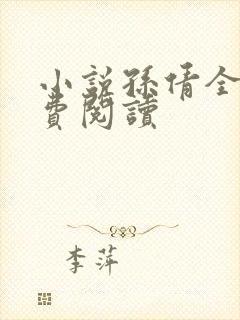 小說孫倩全
費閱讀
李萍